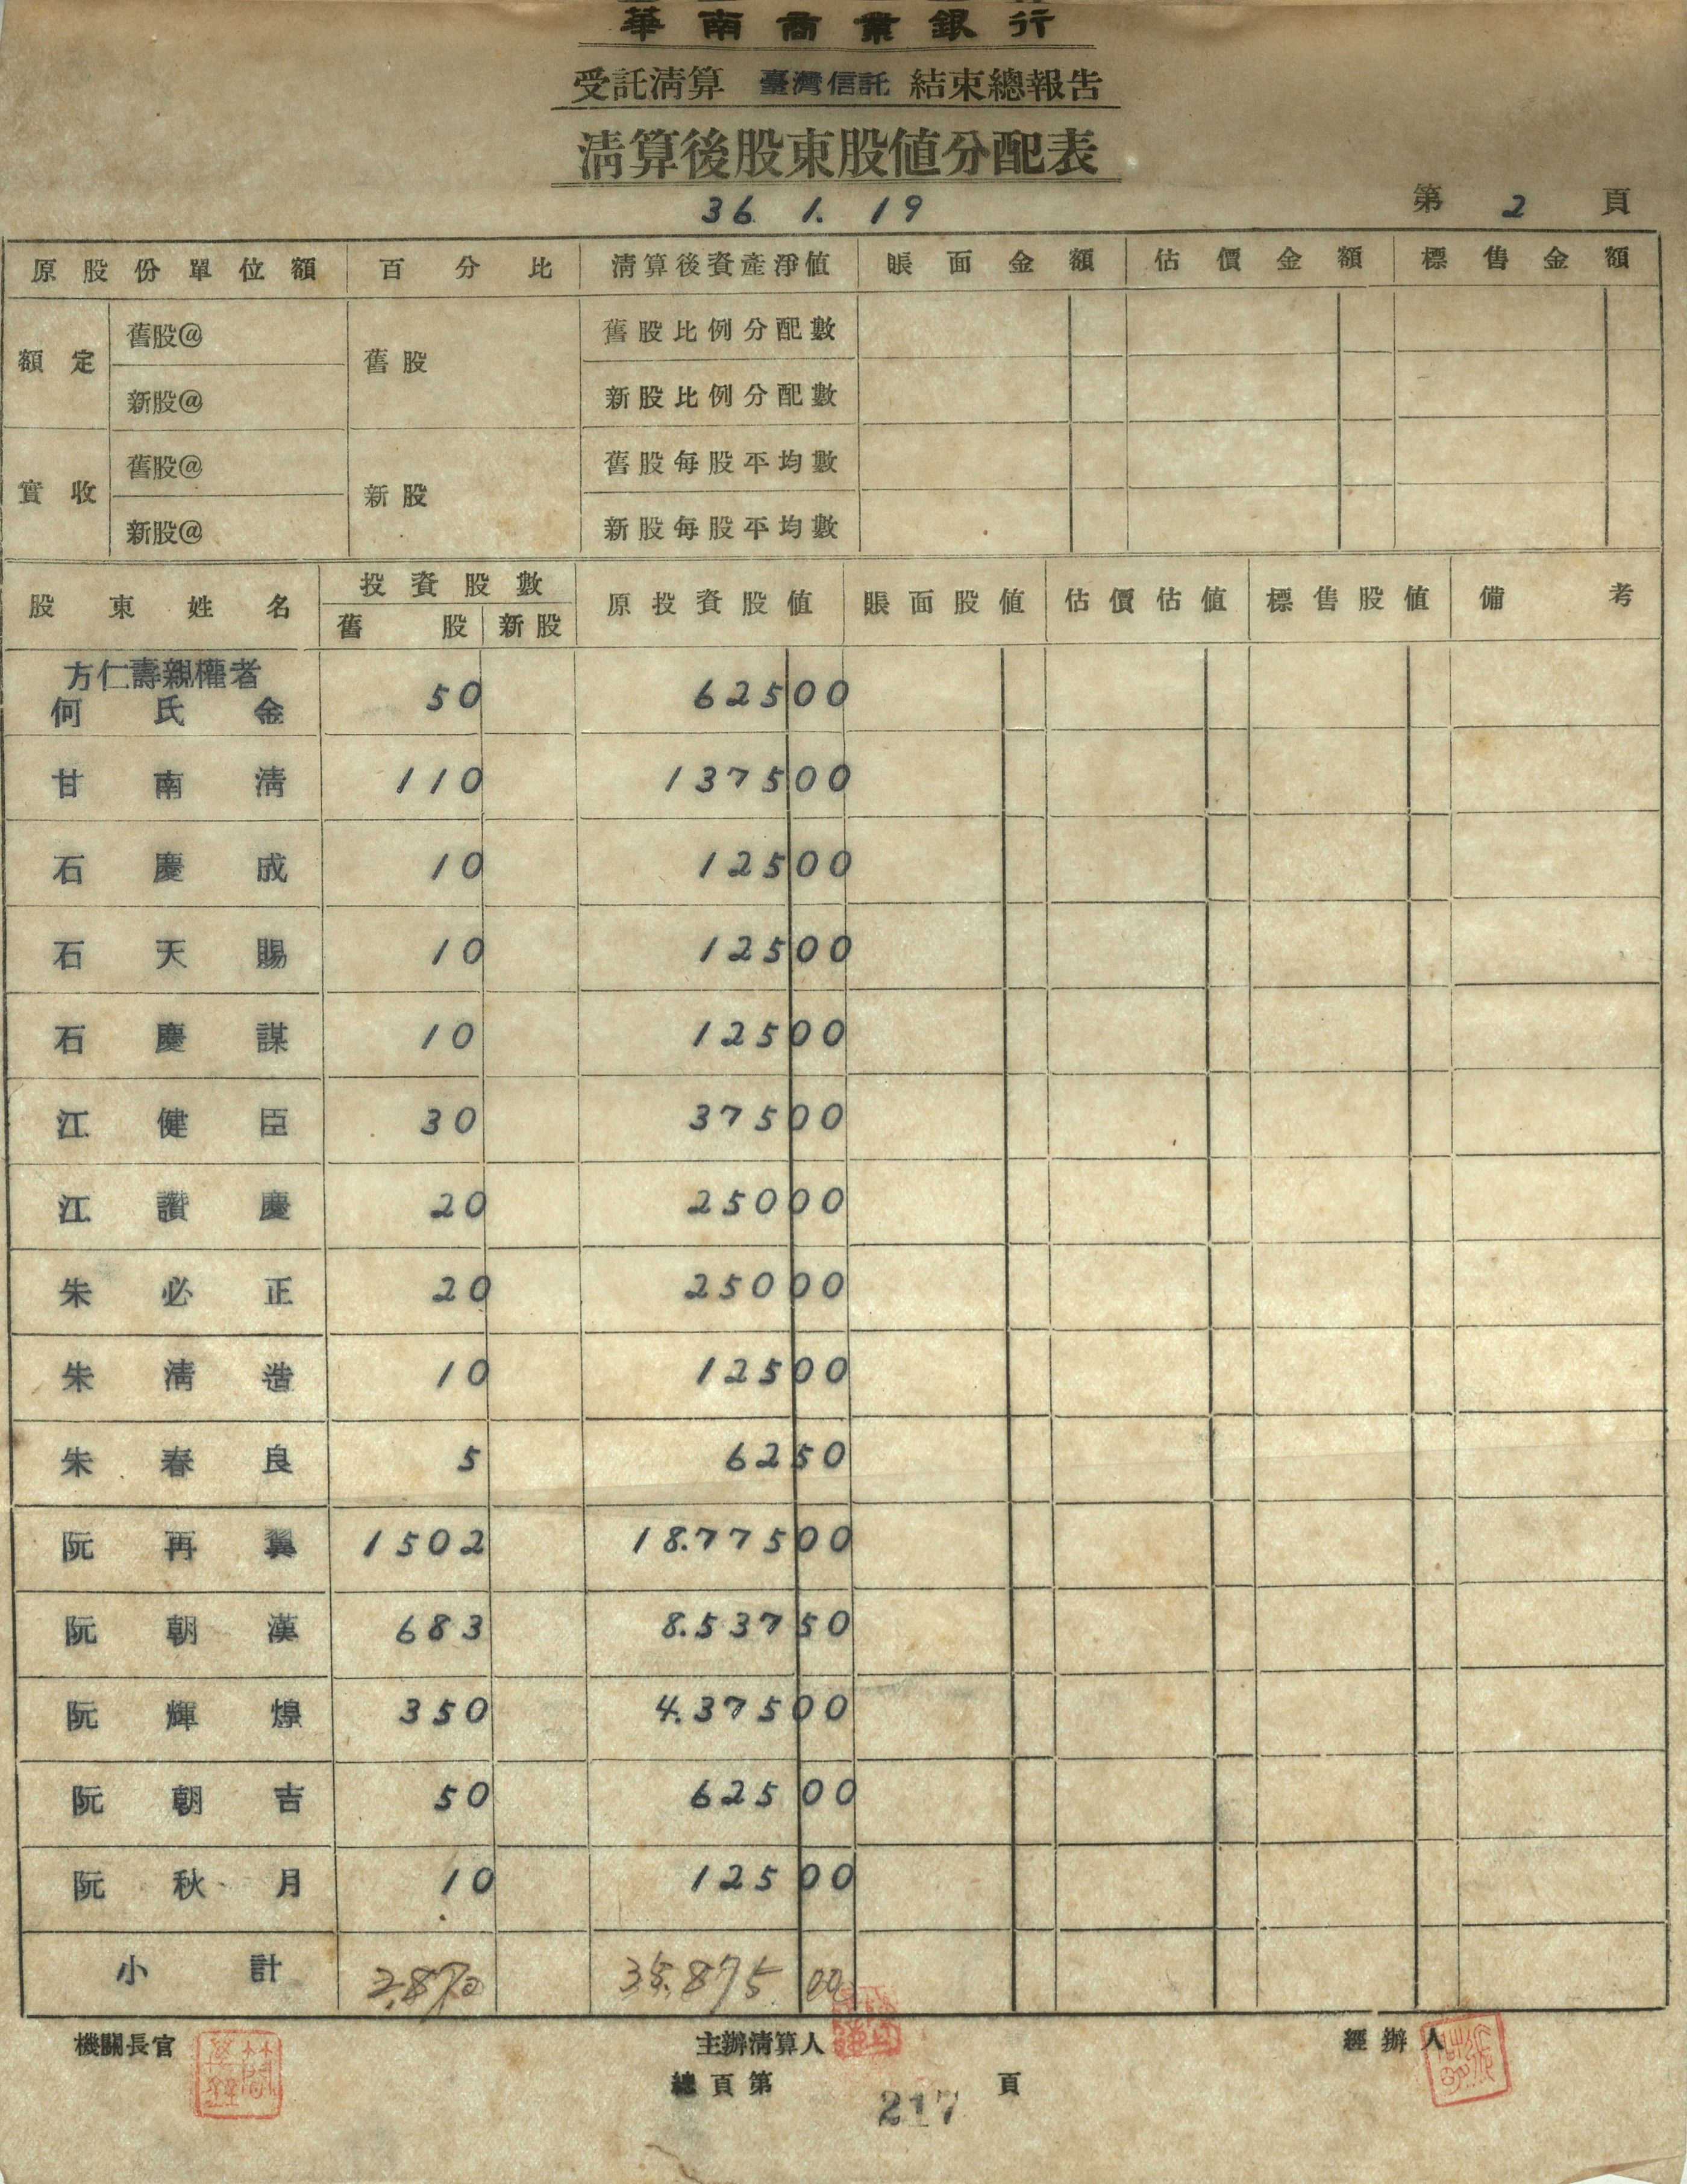 華南商業銀行
受託清算 臺灣信託 結束總報告
清算後股東股値分配表
36. 1. 19
第 2 頁
原股份單位額 百分比 清算後資產淨値 賬面金額 估價金額 標售金額
額定 舊股@ 舊股 舊股比例分配數
新股@ 新股比例分配數
實收 舊股@ 新股 舊股每股平均數
新股@ 新股每股平均數
股東姓名 投資股數 原投資股値 賬面股値 估價估値 標售股値 備考
舊股 新股
方仁壽親權者
何氏金 50 625 00
甘南清 110 1375 00
石慶成 10 125 00
石天賜 10 125 00
石慶謀 10 125 00
江健臣 30 375 00
江讚慶 20 250 00
朱必正 20 250 00
朱清造 10 125 00
朱春良 5 62 50
阮再翼 1502 18.775 00
阮朝漢 683 8.537 50
阮輝煌 350 4.375 00
阮朝吉 50 625 00
阮秋月 10 125 00
小計 2,870 35,875 00
機關長官 主辦清算人 經辦人
總頁第 217 頁